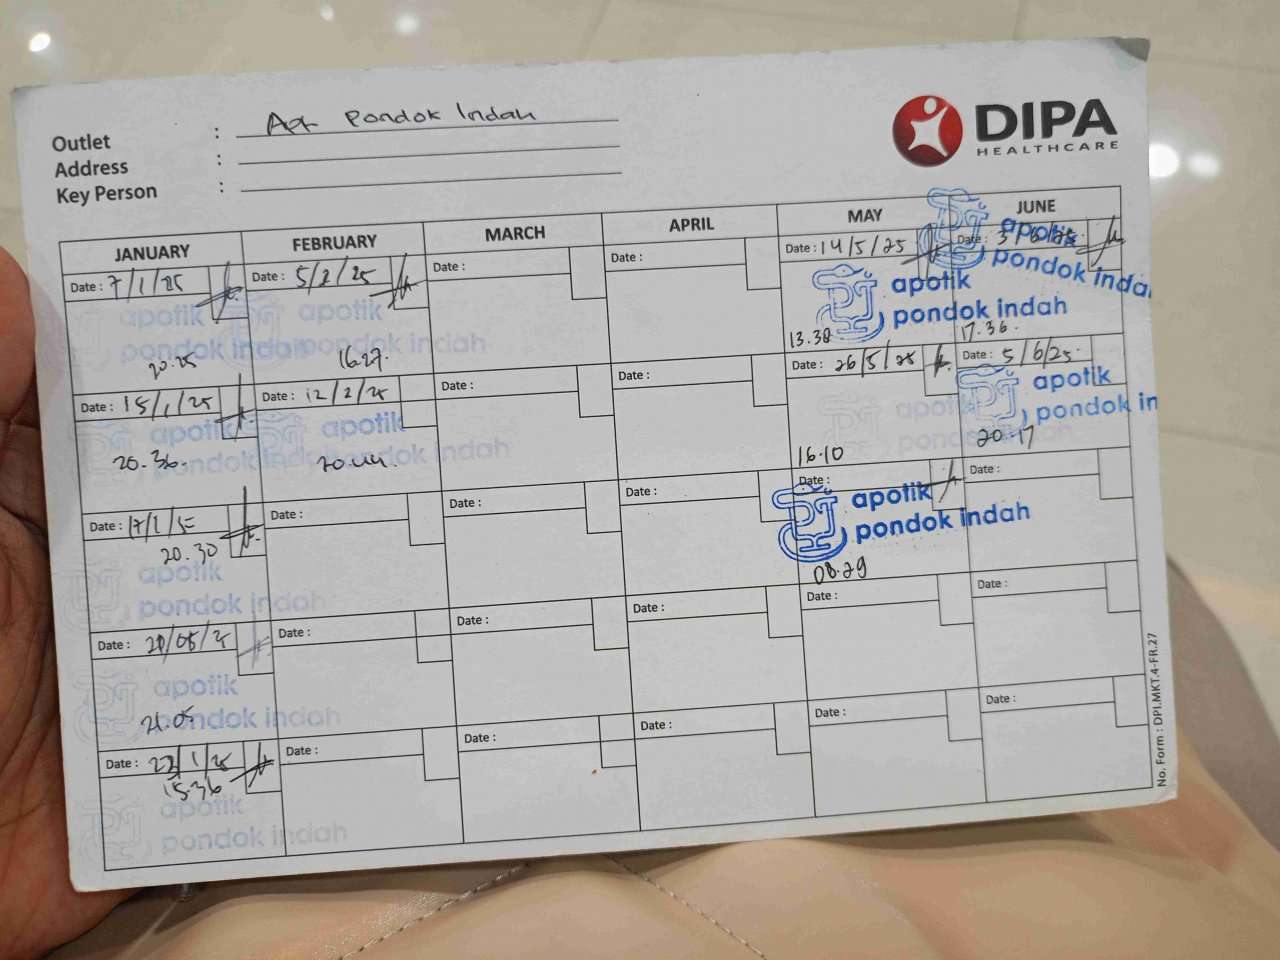 Outlet : Apt Pondok Indah
Address :
Key Person :
DIPA
HEALTHCARE
JANUARY
Date : 7/1/25
apotik
pondok indah
20.25
Date : 15/1/25
apotik
pondok indah
20.36
Date :
20.30
apotik
pondok indah
Date :
apotik
pondok indah
21.05
Date : 1/25
15.36
apotik
pondok indah
FEBRUARY
Date : 5/2/25
apotik
pondok indah
16.27.
Date : 12/2/25
apotik
pondok indah
Date :
Date :
Date :
MARCH
Date :
Date :
Date :
Date :
Date :
APRIL
Date :
Date :
Date :
Date :
Date :
MAY
Date : 14/5/25
apotik
pondok indah
13.38
Date : 26/5/25
16.10
Date :
apotik
pondok indah
08.29
Date :
Date :
JUNE
Date : 3/6/25
apotik
pondok indah
17.36.
Date : 5/6/25
apotik
pondok in
20.17
Date :
Date :
Date :
No. Form : DPI.MKT.4-FR.27